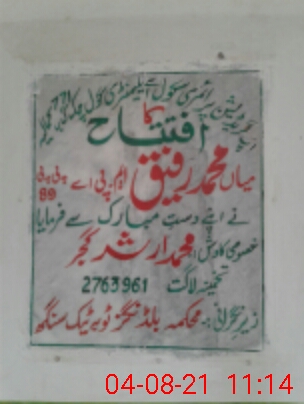 اپ گریڈیشن پرائمری سکول سے ایلیمنٹری سکول چک نمبر
کا
افتتاح
میاں محمد رفیق ایم۔پی اے پی پی 89
نے اپنے دست مبارک سے فرمایا
خصوصی کاوش: محمد ارشد گجر
تخمینہ لاگت 2763961
زیر نگرانی:۔ محکمہ بلڈنگز ٹوبہ ٹیک سنگھ
04-08-21 11:14